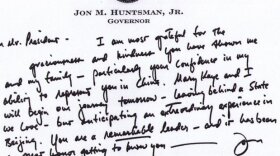 JON M. HUNTSMAN, JR.
GOVERNOR
Mr. President - I am most grateful for the
graciousness and kindness you have shown me
and my family - particularly your confidence in my
ability to represent you in China. Mary Kaye and I
will begin our journey tomorrow - leaving behind a State
we love - but anticipating an extraordinary experience in
Beijing. You are a remarkable leader - and it has been
honor getting to know you